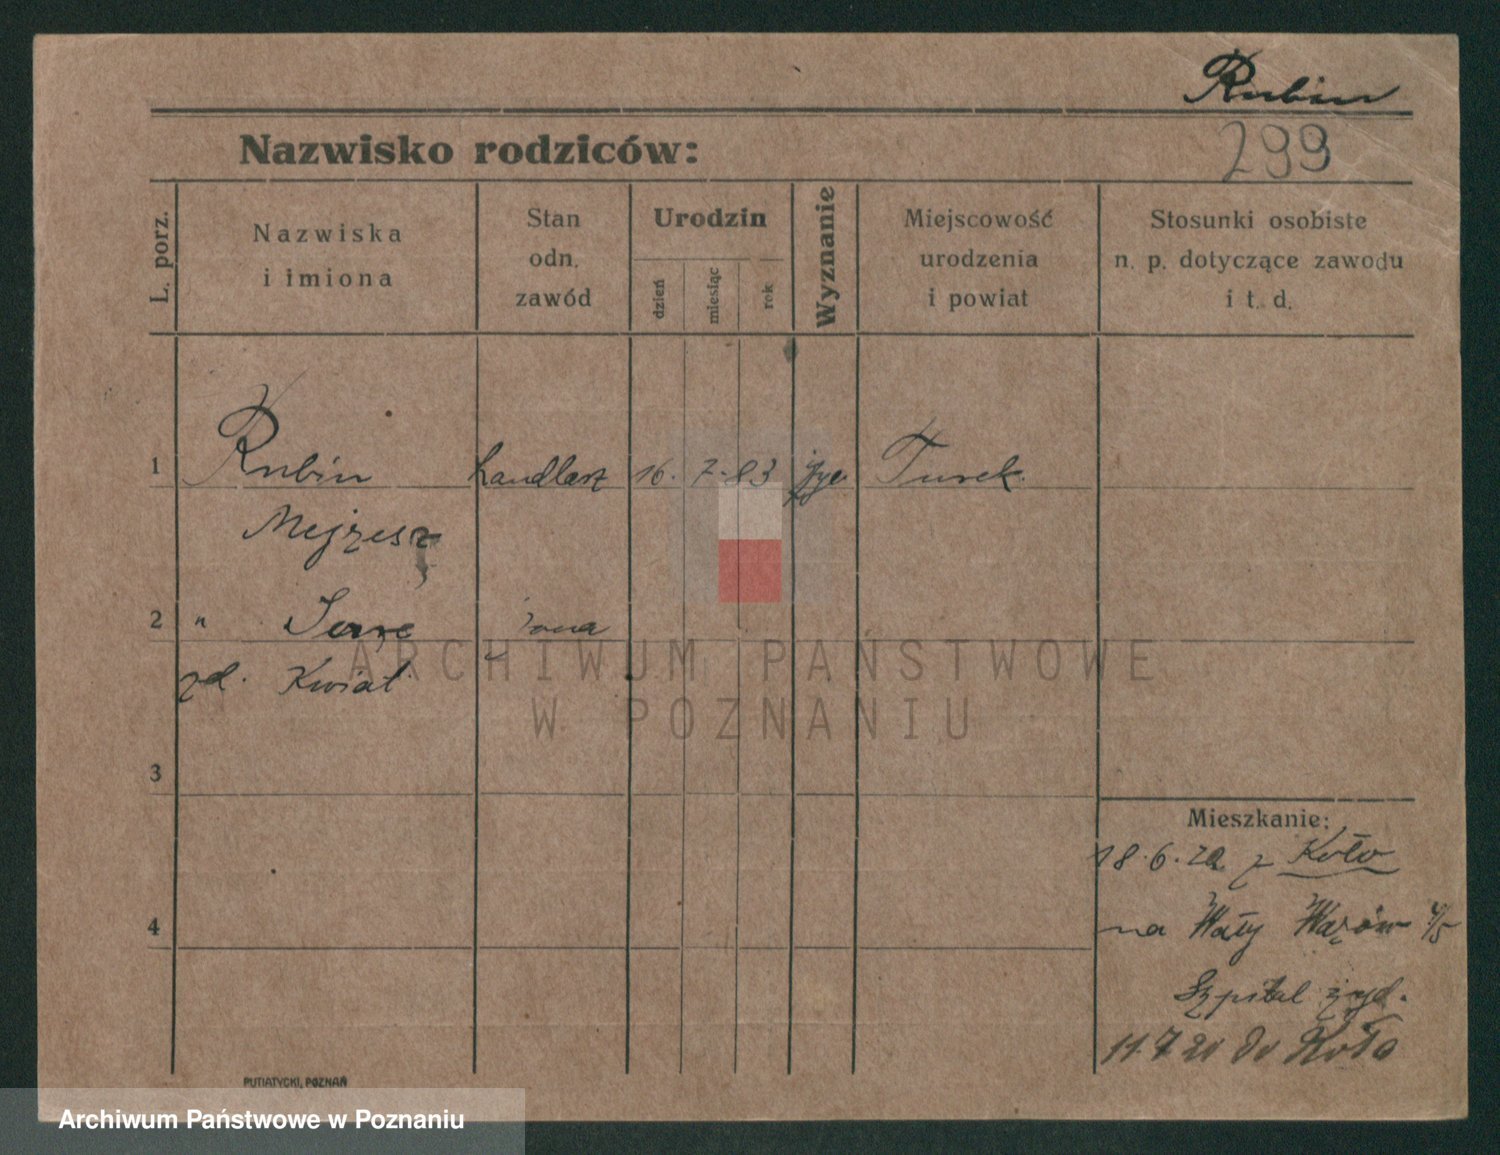 Rubin
299
Nazwisko rodziców:
L. porz.
Nazwiska
i imiona
Stan
odn.
zawód
Urodzin
dzień
miesiąc
rok
Wyznanie
Miejscowość
urodzenia
i powiat
Stosunki osobiste
n. p. dotyczące zawodu
i t. d.
1 Rubin handlarz 16. 7. 83 Turek
Mejżesz
2 " żona
zd. Kwiat
3
Mieszkanie:
18.6.20 z Koło
4
na Wały Wazów 4/5
Szpital żyd.
11.7 20 do Koła
PUTIATYCKI, POZNAŃ
ARCHIWUM PAŃSTWOWE
W POZNANIU
Archiwum Państwowe w Poznaniu